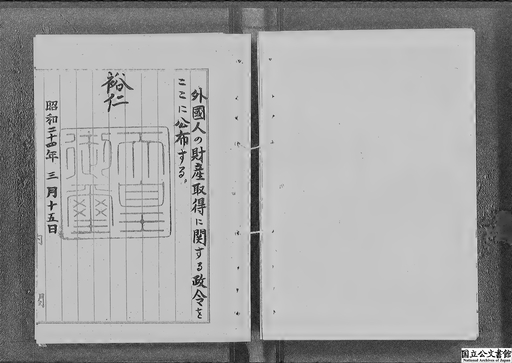 外國人の財産取得に関する政令を
ここに公布する。
裕仁
天皇御璽
昭和二十四年三月十五日
国立公文書館
National Archives of Japan